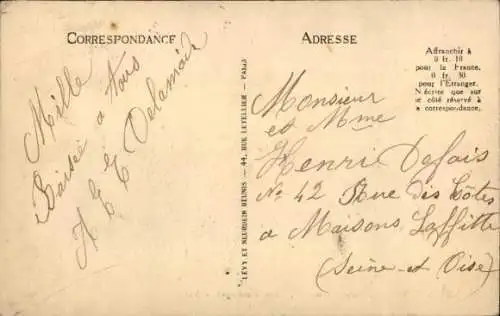 CORRESPONDANCE
Mille
Baisée a tous
A E E Delamair
LÉVY ET NEURDEIN RÉUNIS — 44, RUE LETELLIER — PARIS
ADRESSE
Affranchir à
0 fr. 10
pour la France,
0 fr. 30
pour l'Étranger.
N'écrire que sur
le côté réservé à
la correspondance.
Monsieur
et Mme
Henri Defais
No 42 Rue des Côtes
a Maisons Laffitte
(Seine-et Oise)